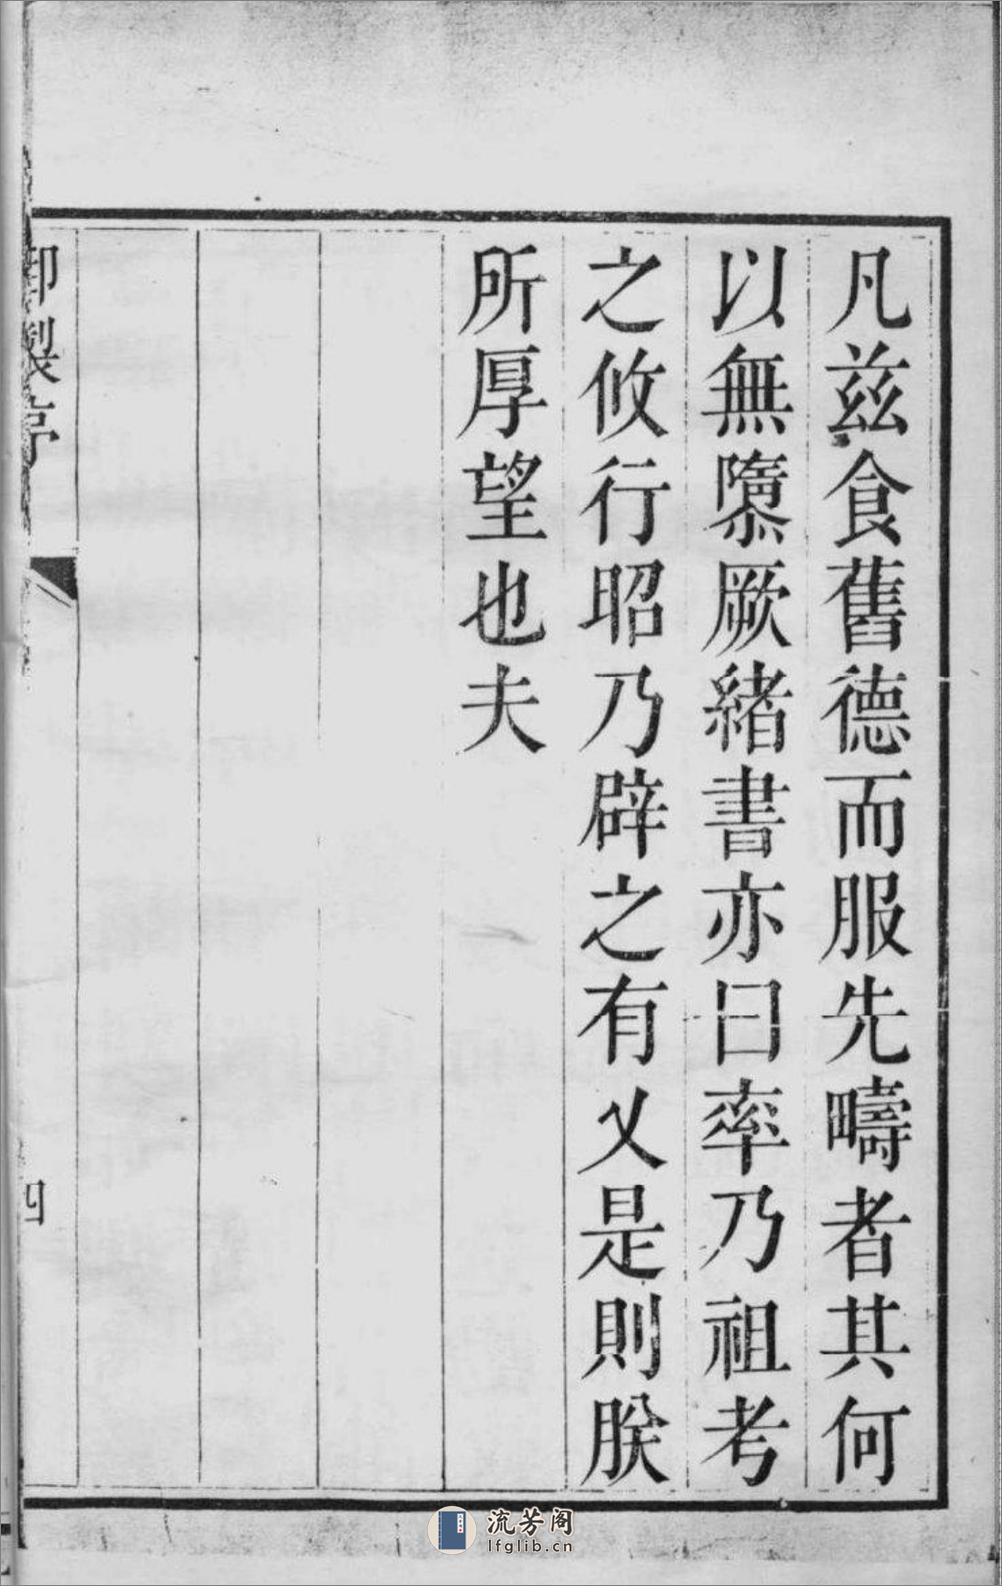 凡茲食舊德而服先疇者其何
以無隳厥緒書亦曰率乃祖考
之攸行昭乃辟之有乂是則朕
所厚望也夫
御製序
四
流芳阁
lfglib.cn